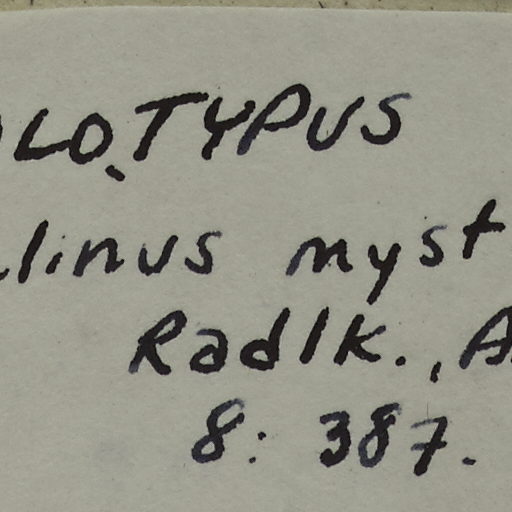 OLOTYPUS
linus myst
Radlk., A
8: 387.